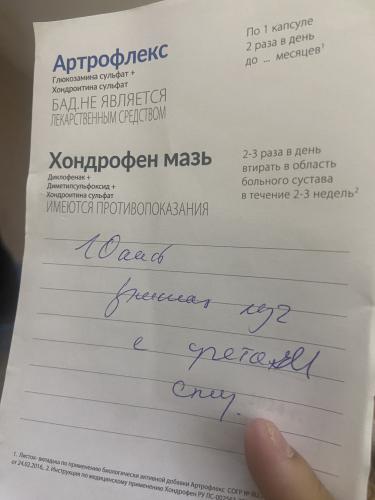 Артрофлекс
Глюкозамина сульфат +
Хондроитина сульфат
БАД.НЕ ЯВЛЯЕТСЯ
ЛЕКАРСТВЕННЫМ СРЕДСТВОМ
По 1 капсуле
2 раза в день
до ... месяцев¹
Хондрофен мазь
Диклофенак +
Диметилсульфоксид +
Хондроитина сульфат
ИМЕЮТСЯ ПРОТИВОПОКАЗАНИЯ
2-3 раза в день
втирать в область
больного сустава
в течение 2-3 недель²
с
1. Листок- вкладка по применению биологически активной добавки Артрофлекс СОГР №
от 24.02.2016, 2. Инструкция по медицинскому применению Хондрофен РУ